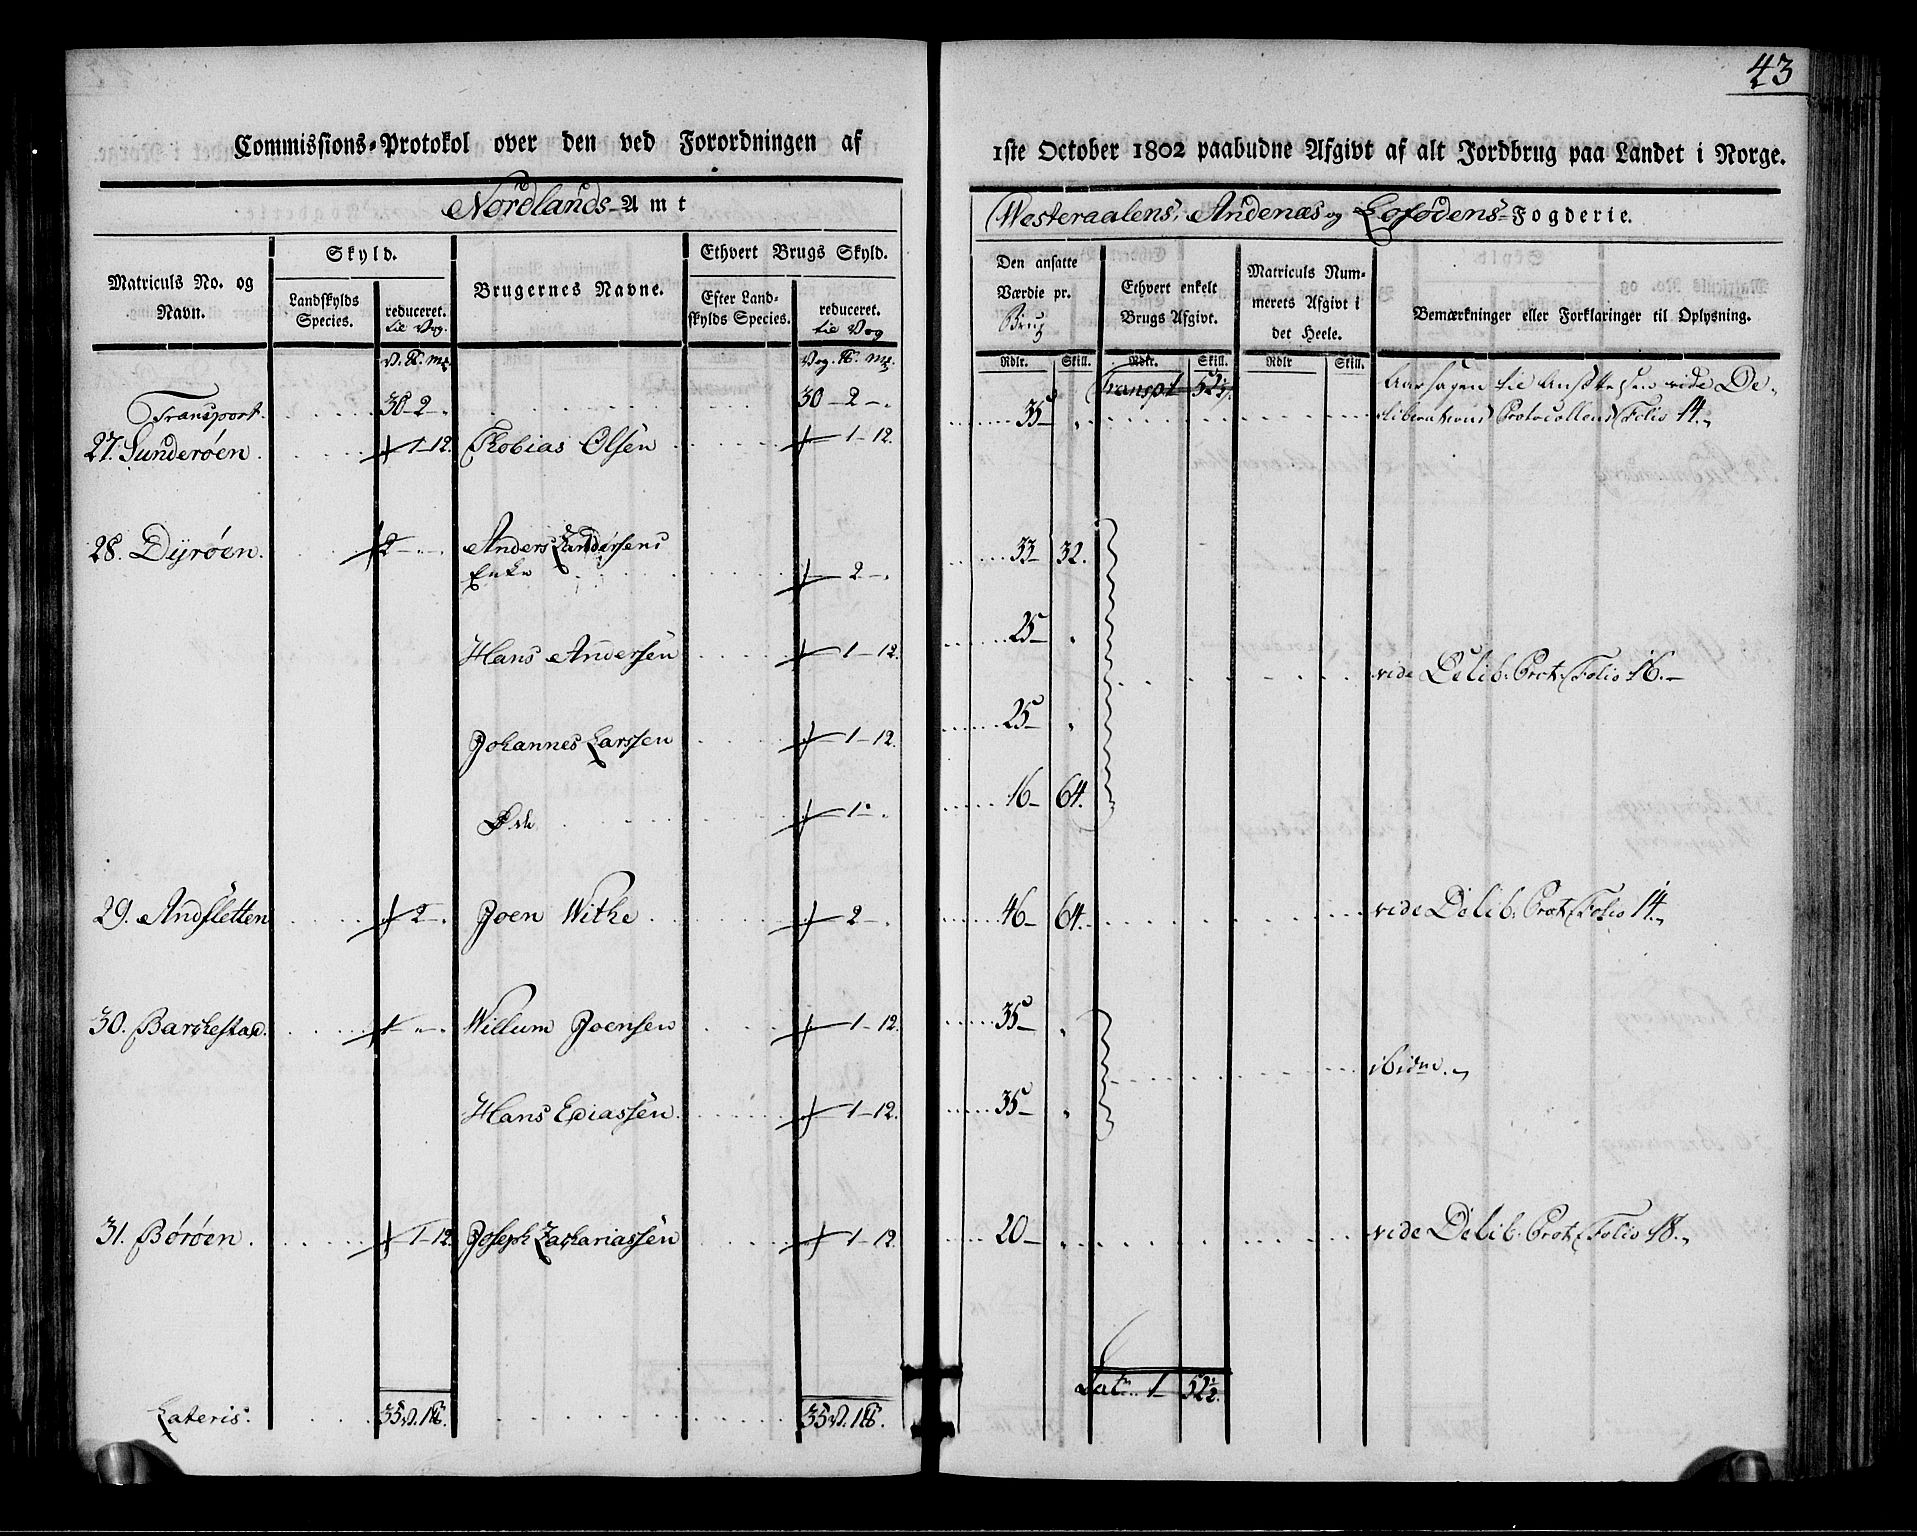 43
Commissions-Protokol over den ved Forordningen af
1ste October 1802 paabudne Afgivt af alt Jordbrug paa Landet i Norge.
Nordlands-Amt
Westeraalens, Andenæs og Lofodens-Fogderie.
Matriculs No. og Navn.
Skyld.
Landskylds Species.
reduceret. til Vog.
Brugernes Navne.
Ethvert Brugs Skyld.
Efter Landskylds Species.
reduceret. til Vog
Den ansatte Værdie pr. Brug
Ethvert enkelt Brugs Afgivt.
Matriculs Nummerets Afgivt i det Heele.
Bemærkninger eller Forklaringer til Oplysning.
Rdlr. Skill. Rdlr. Skill. Rdlr Skill.
Transport. 30 2 - 30 - 2 - Transpt 52½
27. Sunderøen. 1-12. Tobias Olsen 1-12. 35 - Aarsagen til Ansættelsen vide De-
liberations Protocollens Folio 14.
28. Dyrøen. 2 - Anders Andersens
Enke 2 - 33 - 32.
Hans Andersen 1-12. 25 -
vide Delib. Prot. Folio 16. -
Johannes Larssen 1-12. 25 -
Øde 1 - 16 - 64.
29. Andsletten 2 - Joen Withe 2 - 46 - 64. vide Delib. Prot. Folio 14.
30. Barkestad. Willum Joensen 1-12. 35 -
ibidm.
Hans Eliassen 1-12. 35 -
31. Børøen. 1-12. Joseph Zachariassen 1-12. 20 - vide Delib. Prot. Folio 18.
Lat. 1 - 52½.
Lateris: 35 V. 1 35 V. 1